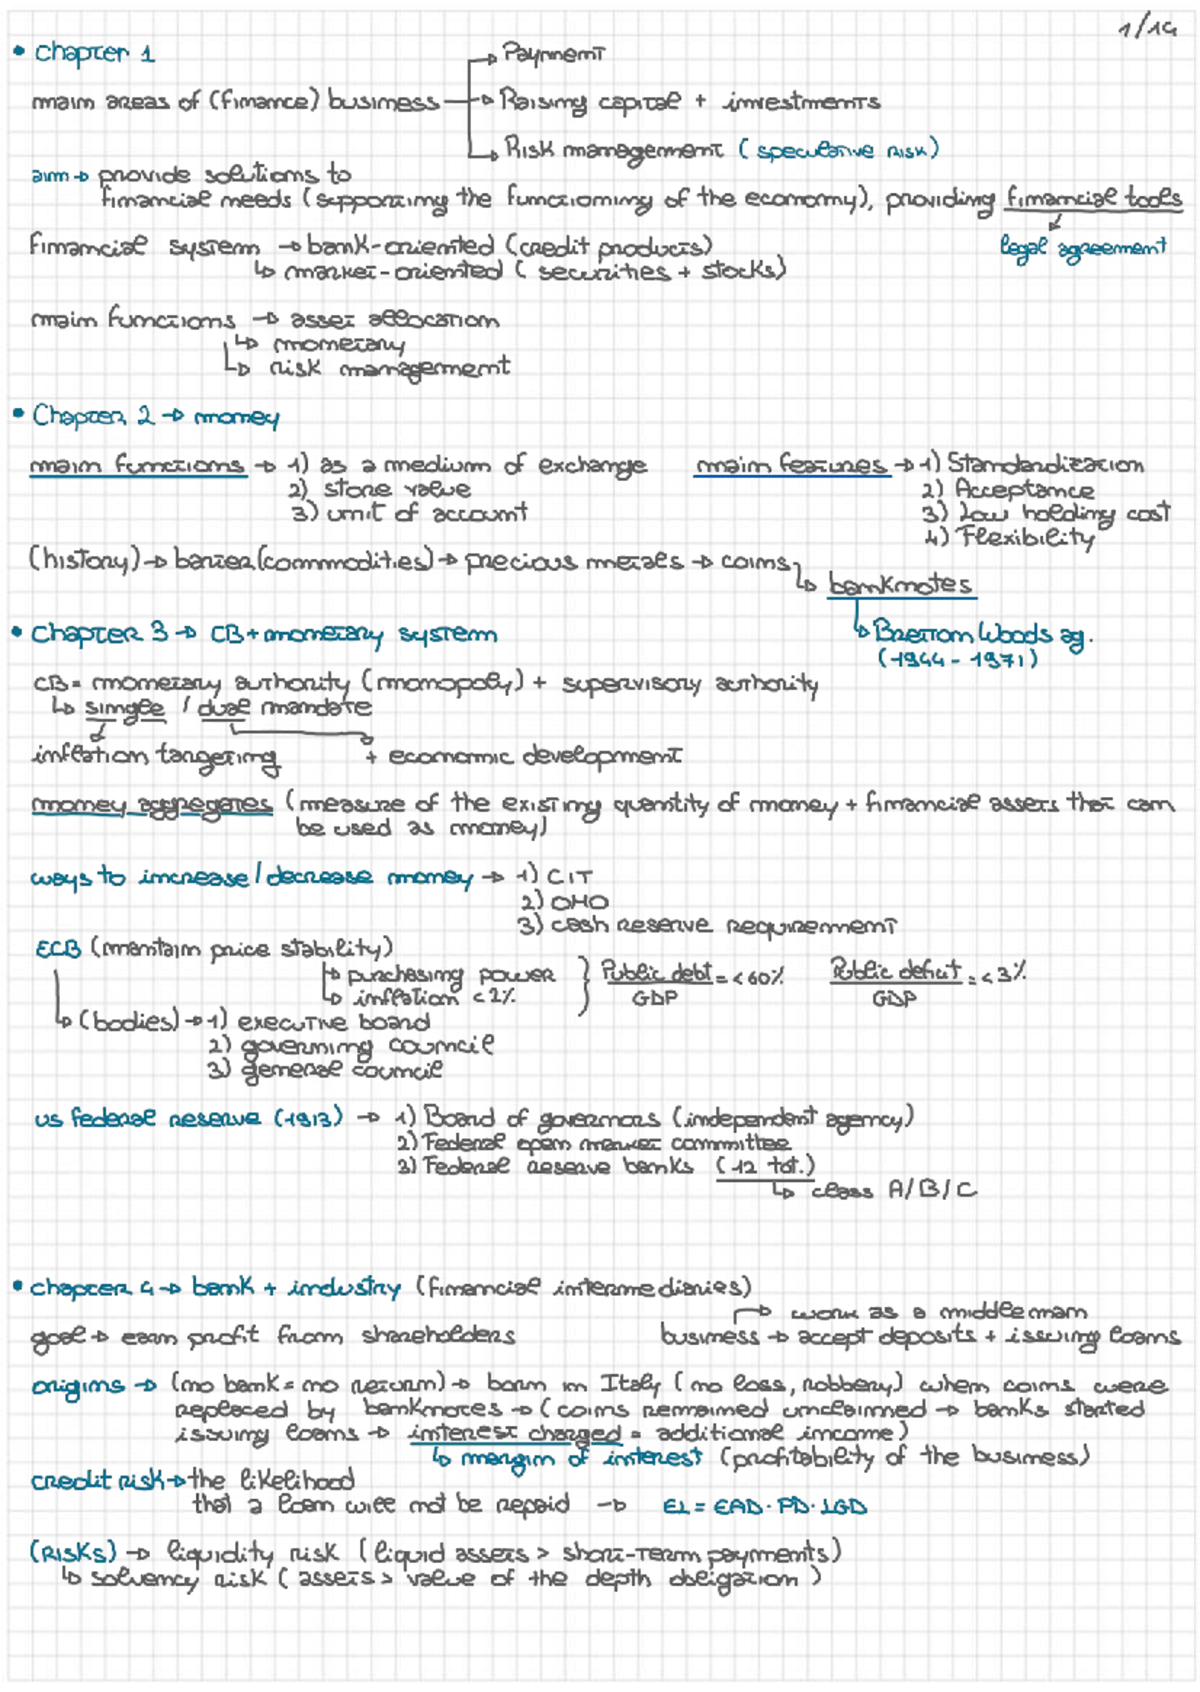 1/14
• chapter 1
→ Payment
main areas of (finance) business → Raising capital + investments
→ Risk management (speculative risk)
aim → provide solutions to
financial needs (supporting the functioning of the economy), providing financial tools
↳ legal agreement
financial system → bank-oriented (credit products)
↳ market-oriented (securities + stocks)
main functions → asset allocation
↳ monetary
↳ risk management
• Chapter 2 → money
main functions → 1) as a medium of exchange
2) store value
3) unit of account
main features → 1) Standardization
2) Acceptance
3) Low holding cost
4) Flexibility
(history) → barter (commodities) → precious metals → coins
↳ banknotes
↳ Bretton Woods ag.
(1944 - 1971)
• chapter 3 → CB + monetary system
CB = monetary authority (monopoly) + supervisory authority
↳ single / dual mandate
inflation targeting + economic development
money aggregates (measure of the existing quantity of money + financial assets that can
be used as money)
ways to increase/decrease money → 1) CIT
2) OMO
3) cash reserve requirement
ECB (mantain price stability)
↳ purchasing power
↳ inflation < 2%
} Public debt / GDP = < 60% Public deficit / GDP = < 3%
↳ (bodies) → 1) executive board
2) governing council
3) general council
US federal reserve (1913) → 1) Board of governors (independent agency)
2) Federal open market committee
3) Federal reserve banks (12 tot.)
↳ class A/B/C
• chapter 4 → bank + industry (financial intermediaries)
→ work as a middleman
goal → earn profit from shareholders
business → accept deposits + issuing loans
origins → (no bank = no return) → born in Italy (no loss, robbery) when coins were
replaced by banknotes → (coins remained unclaimed → banks started
issuing loans → interest charged = additional income)
↳ margin of interest (profitability of the business)
credit risk → the likelihood
that a loan will not be repaid → EL = EAD · PD · LGD
(RISKS) → liquidity risk (liquid assets > short-term payments)
↳ solvency risk (assets > value of the depth obligation)